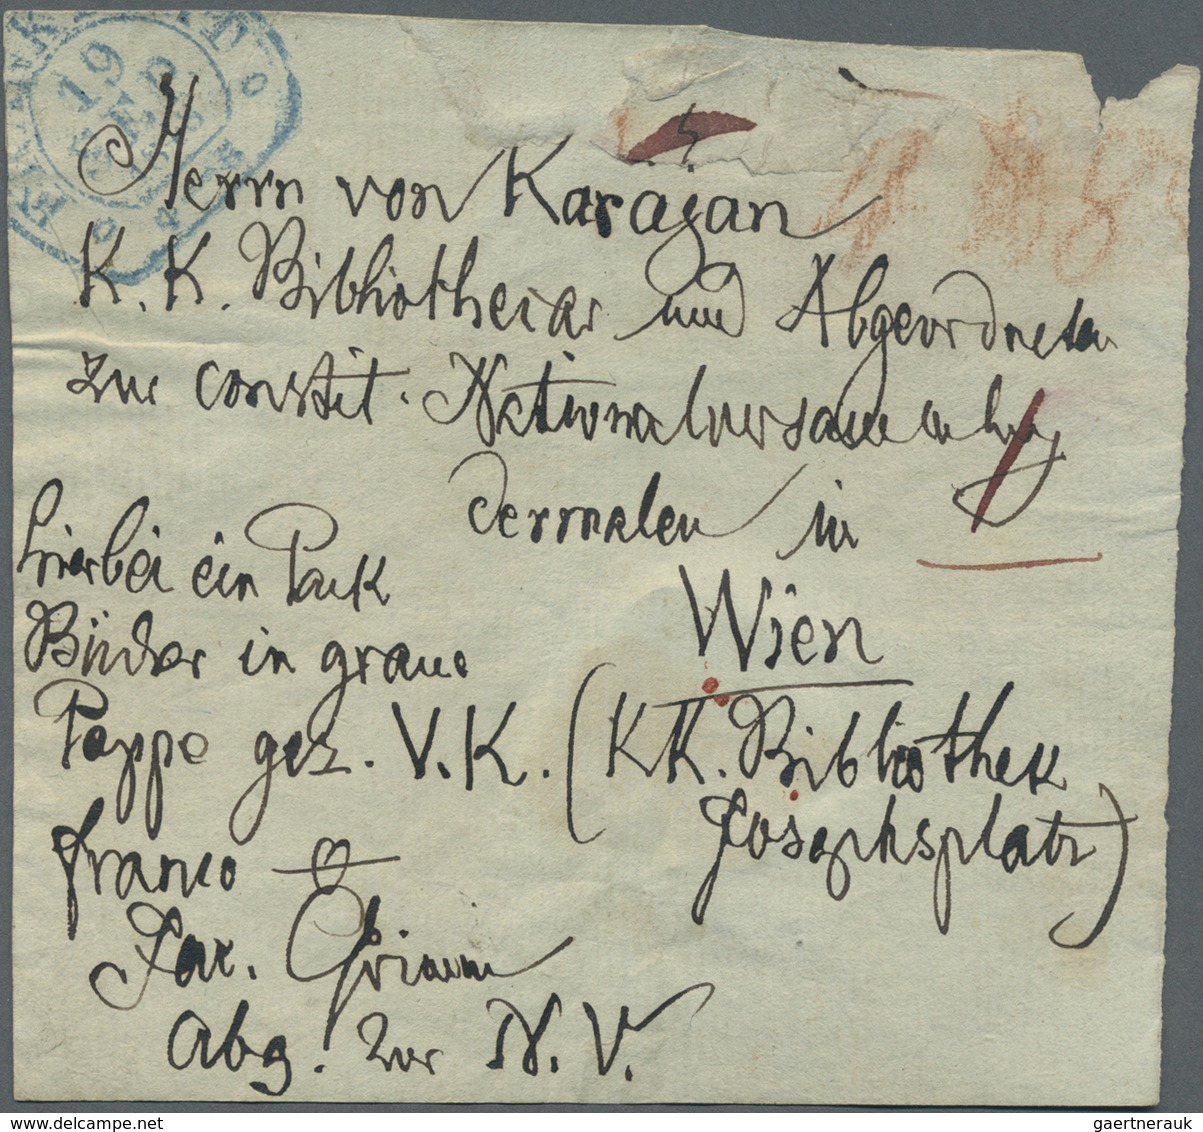 19
SEP
Herrn von Karajan
K. K. Bibliothekar und Abgeordneten
zur constit. Nationalversammlung
dermalen in
Wien
(KK. Bibliothek
Josephsplatz)
hierbei ein Pack
Bücher in grauer
Pappe gez. V. K.
franco
Jac. Grimm
Abg. zur N. V.
gaertnerauk